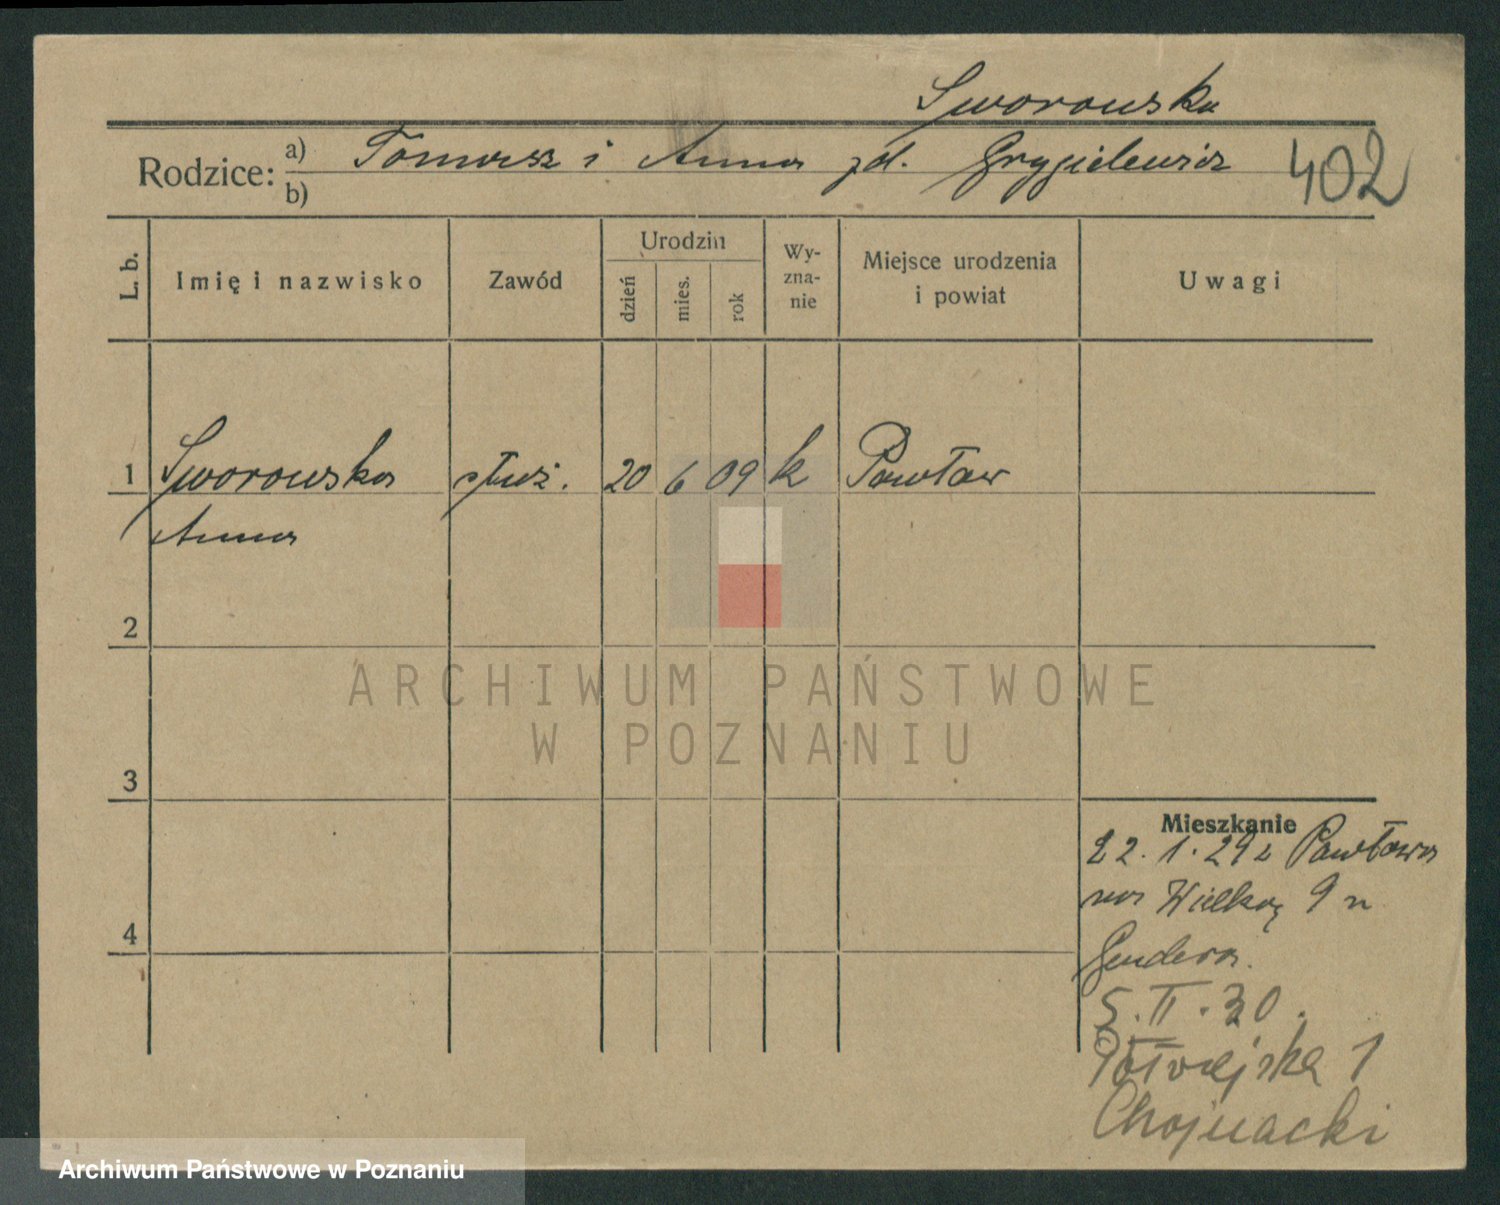 Sworowska
Rodzice: a) Tomasz i Anna zd. Grygielewicz 402
b)
L. b. Imię i nazwisko Zawód Urodzin dzień mies. rok Wy-zna-nie Miejsce urodzenia i powiat Uwagi
1 Sworowska służ. 20 6 09 k Pawław
Anna
2
ARCHIWUM PAŃSTWOWE
W POZNANIU
3
Mieszkanie
22. 1. 29 z Pawłowa
na Wielką 9 u
Gendera.
4
5. II. 30.
Półwiejska 1
Chojnacki
Archiwum Państwowe w Poznaniu